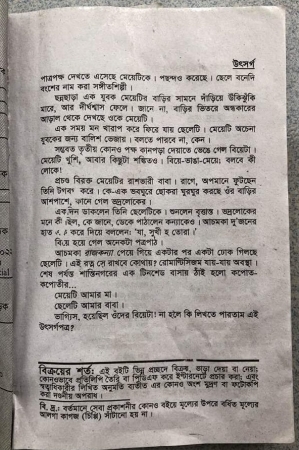 উৎসর্গ
পাত্রপক্ষ দেখতে এসেছে মেয়েটিকে। পছন্দও করেছে। ছেলে বনেদি
বংশের নাম করা সঙ্গীতশিল্পী।
ছন্নছাড়া এক যুবক মেয়েটির বাড়ির সামনে দাঁড়িয়ে উঁকিঝুঁকি
মারে, আর দীর্ঘশ্বাস ফেলে। জানে না, বাড়ির ভিতরে অন্ধকারের
আড়াল থেকে দেখছে ওকে মেয়েটি।
এক সময় মন খারাপ করে ফিরে যায় ছেলেটি। মেয়েটি অচেনা
যুবকের জন্য বালিশ ভেজায়। বলতে পারবে না, কেন।
সম্ভবত তৃতীয় কোনও পক্ষ কানপড়া দেয়াতে ভেঙে গেল বিয়েটা।
মেয়েটি খুশি, আবার কিছুটা শঙ্কিতও। বিয়ে-ভাঙা-মেয়ে; বলবে কী
লোকে!
প্রচণ্ড বিরক্ত মেয়েটির রাশভারী বাবা। রাগে, অপমানে ফুটছেন
তিনি টগবগ করে। কে-এক ভবঘুরে ছোকরা ঘুরঘুর করছে ওঁর বাড়ির
আশপাশে, কানে গেল ভদ্রলোকের।
এক দিন ডাকলেন তিনি ছেলেটিকে। শুনলেন বৃত্তান্ত। ভদ্রলোকের
মনে কী ছিল, কে জানে, ডেকে পাঠালেন কন্যাকেও। আচমকা দু'জনের
হাত এক করে দিয়ে বললেন: 'যা, সুখী হ তোরা।'
বিয়ে হয়ে গেল অনেকটা পত্রপাঠ।
আচমকা রাজকন্যা পেয়ে গিয়ে একটার পর একটা ঢোক গিলছে
ছেলেটি। এই রত্ন সে রাখবে কোথায়? রোমান্টিসিজম যায়-যায় অবস্থা।
শেষ পর্যন্ত শান্তিনগরের এক টিনশেড বাসায় ঠাঁই হলো কপোত-
কপোতীর...
মেয়েটি আমার মা।
ছেলেটি আমার বাবা।
ভাগ্যিস, হয়েছিল ওদের বিয়েটা! না হলে কি লিখতে পারতাম এই
উৎসর্গপত্র?
বিক্রয়ের শর্ত: এই বইটি ভিন্ন প্রচ্ছদে বিক্রয়, ভাড়া দেয়া বা নেয়া;
কোনওভাবে প্রতিলিপি তৈরি বা পিডিএফ করে ইন্টারনেটে প্রচার করা; এবং
স্বত্বাধিকারীর লিখিত অনুমতি ব্যতীত এর কোনও অংশ মুদ্রণ বা ফটোকপি
করা দণ্ডনীয় অপরাধ।
বি. দ্র.: বর্তমানে সেবা প্রকাশনীর কোনও বইয়ে মূল্যের উপরে বর্ধিত মূল্যের
আলগা কাগজ (চিপ্পি) সাঁটানো হয় না।